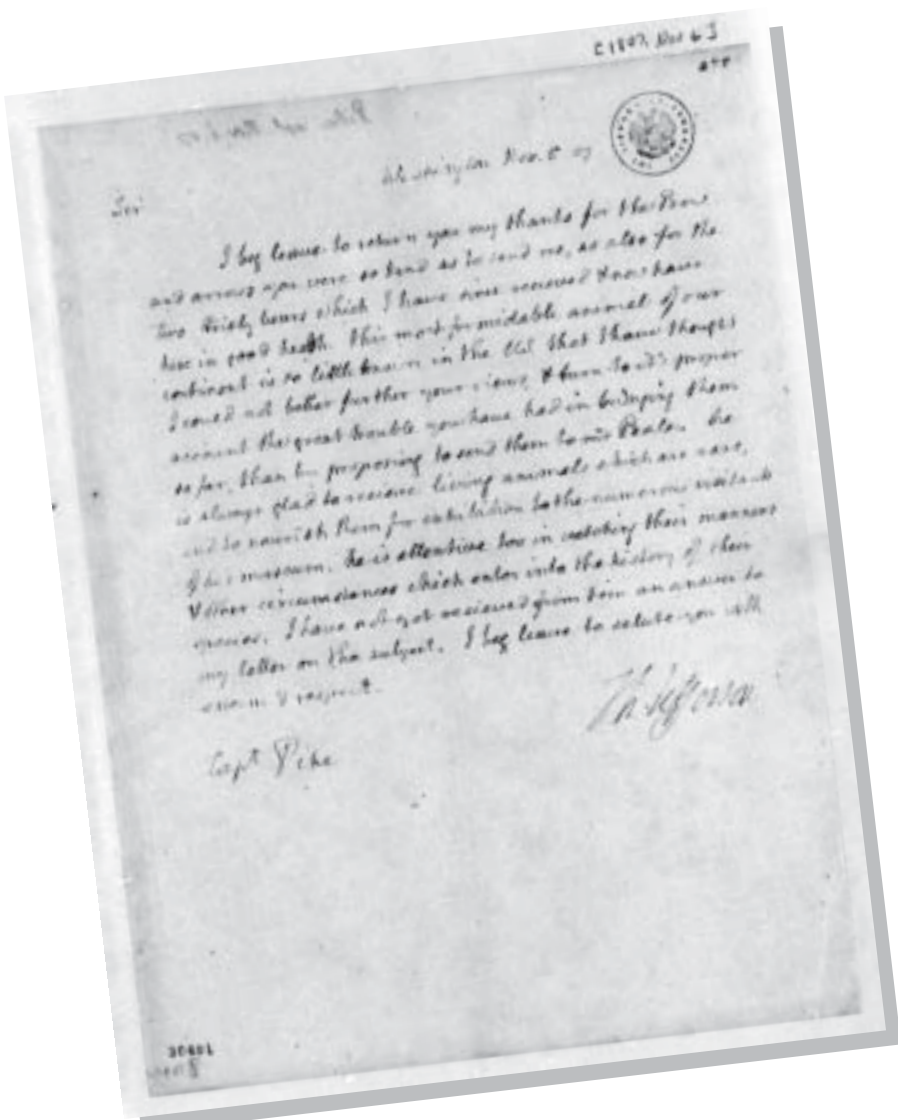 [1807, Nov 6]
Washington Nov. 5 07
THE LIBRARY OF CONGRESS
Sir
I beg leave to return you my thanks for the
and arrows you were so kind as to send me, as also for the
two bears which I have since recieved & now have
here in good health. this most formidable animal of our
continent is so little known in the that I have thought
I could not better further your views, & turn to it's proper
account the great trouble you have had in bringing them
so far, than by proposing to send them to mr Peale. he
is always glad to recieve living animals which are rare,
and to nourish them for exhibition to the numerous visitants
of his museum. he is attentive too in watching their manners
& other circumstances which enter into the history of their
species. I have not yet recieved from him an answer to
my letter on the subject. I beg leave to salute you with
esteem & respect.
Th: Jefferson
Capt Pike
30401